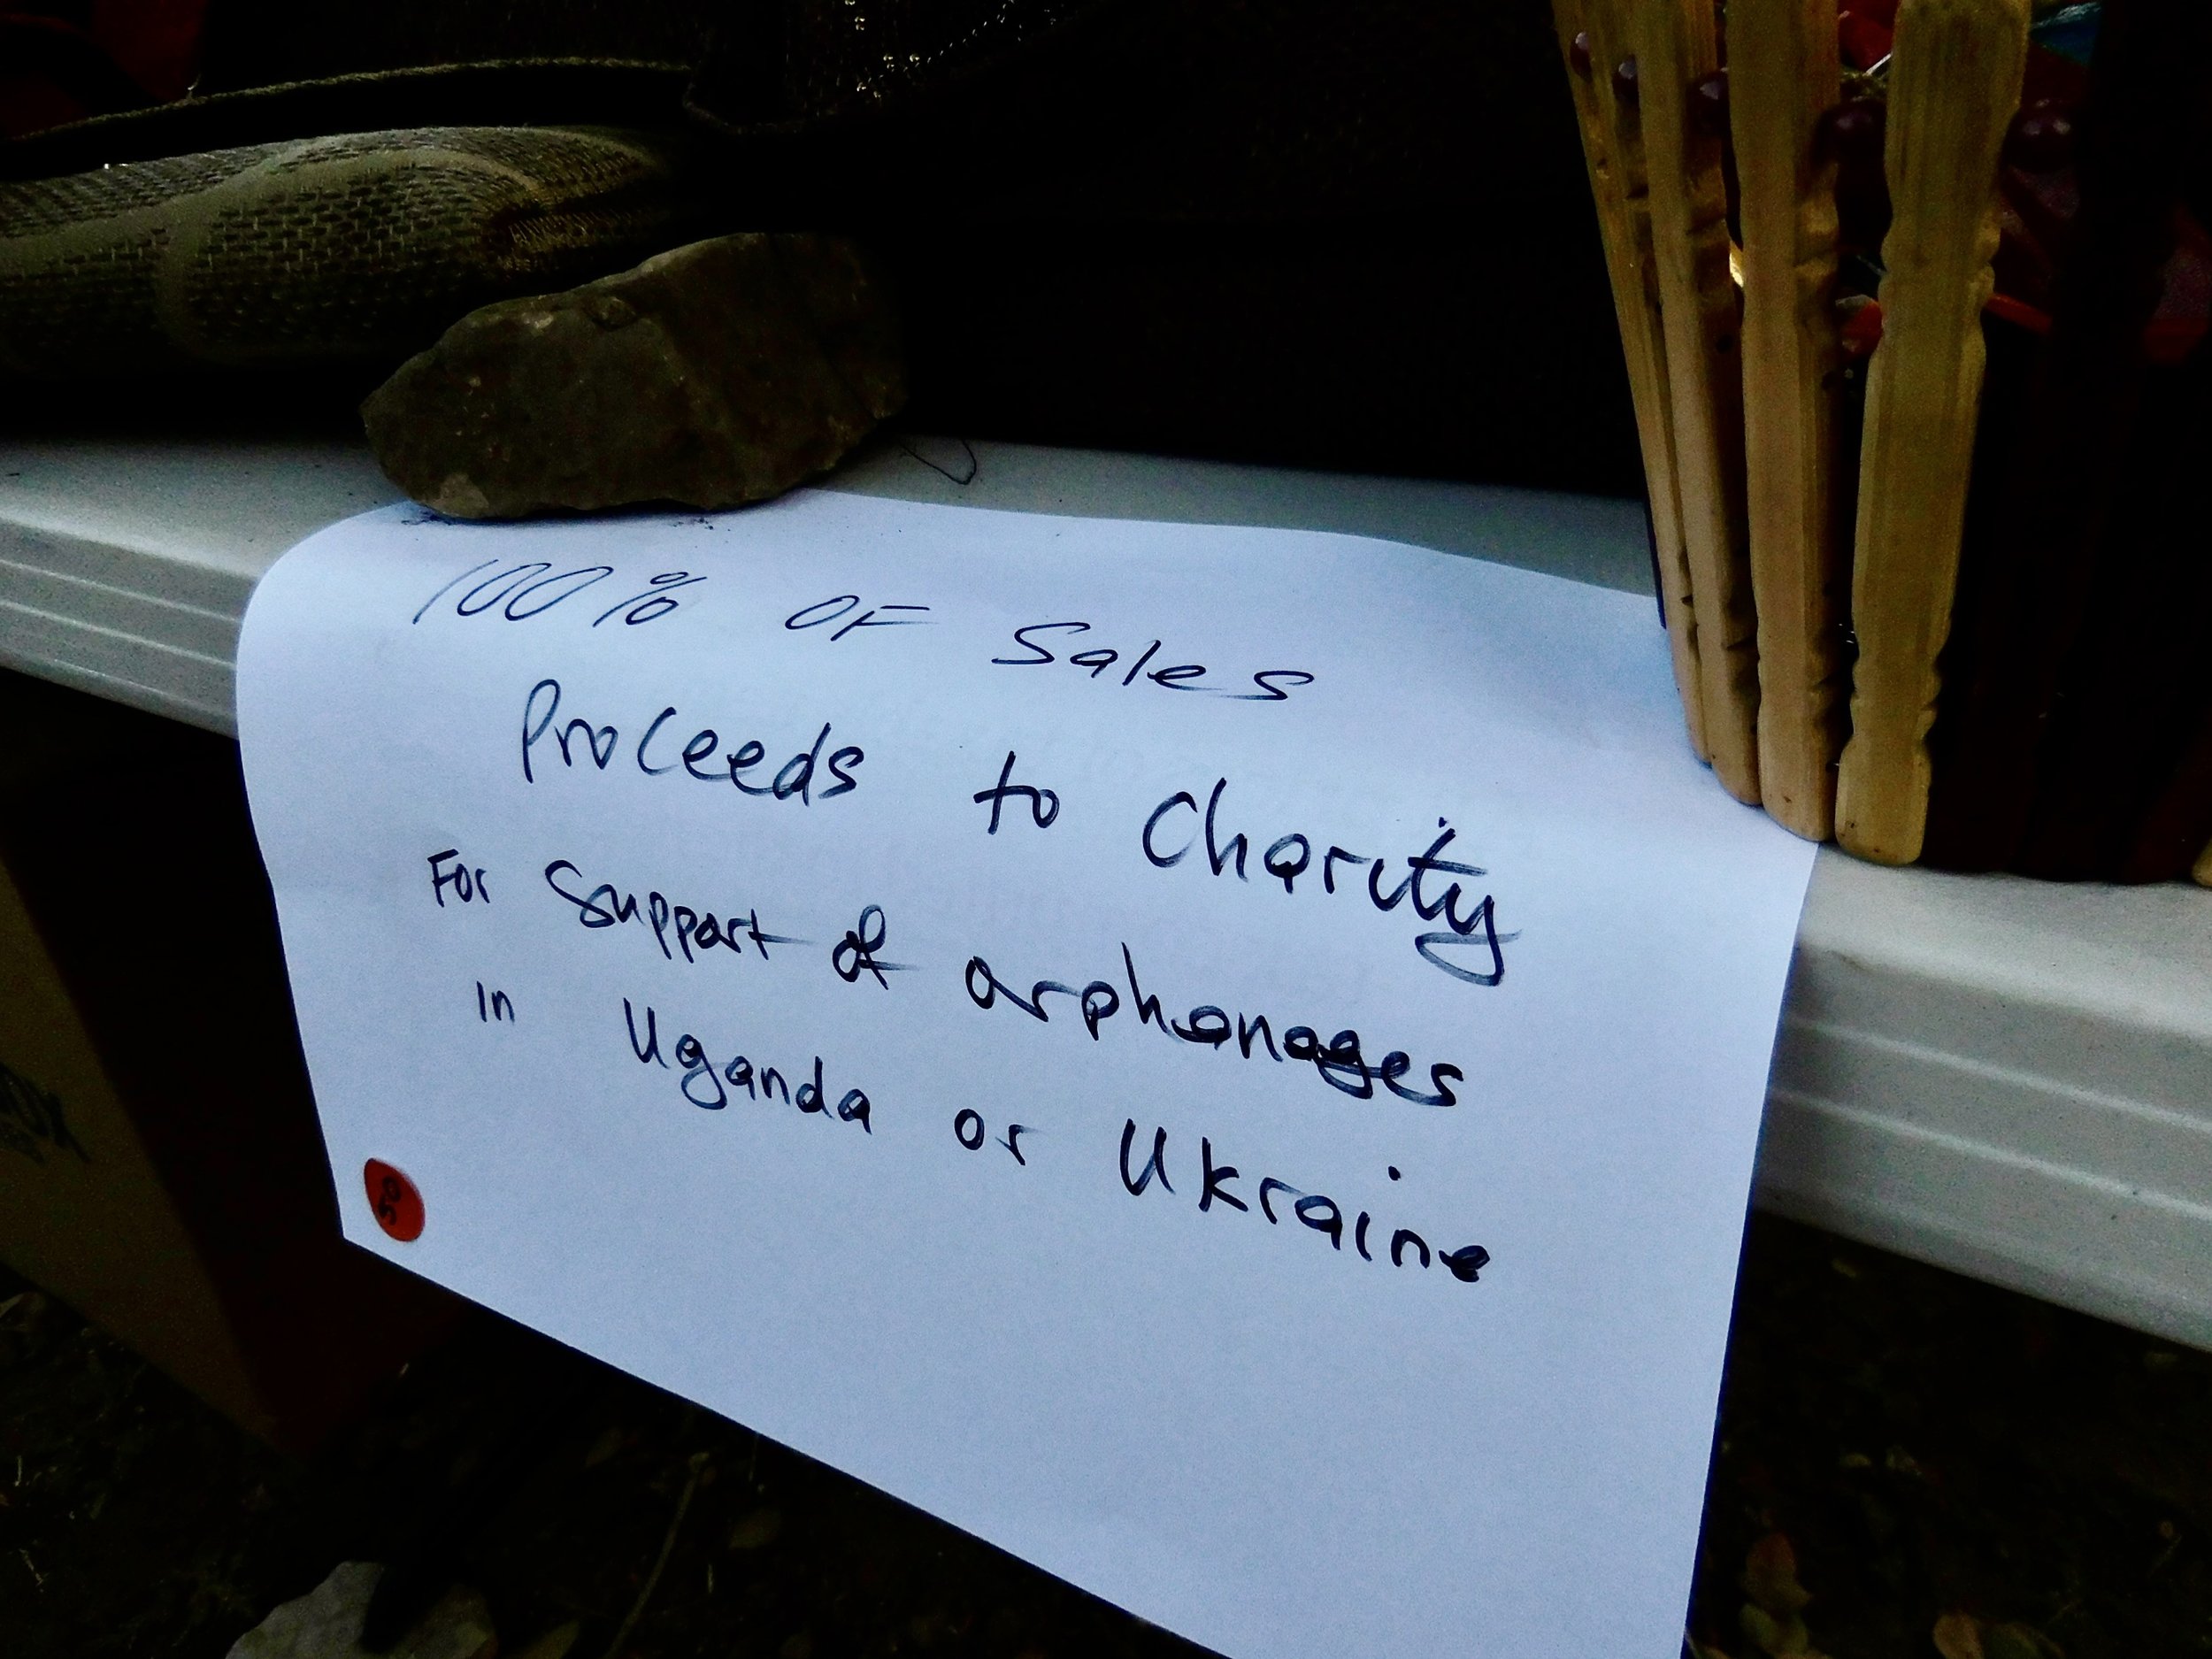 100% OF Sales
Proceeds to Charity
For Support of orphanages
in Uganda or Ukraine
50